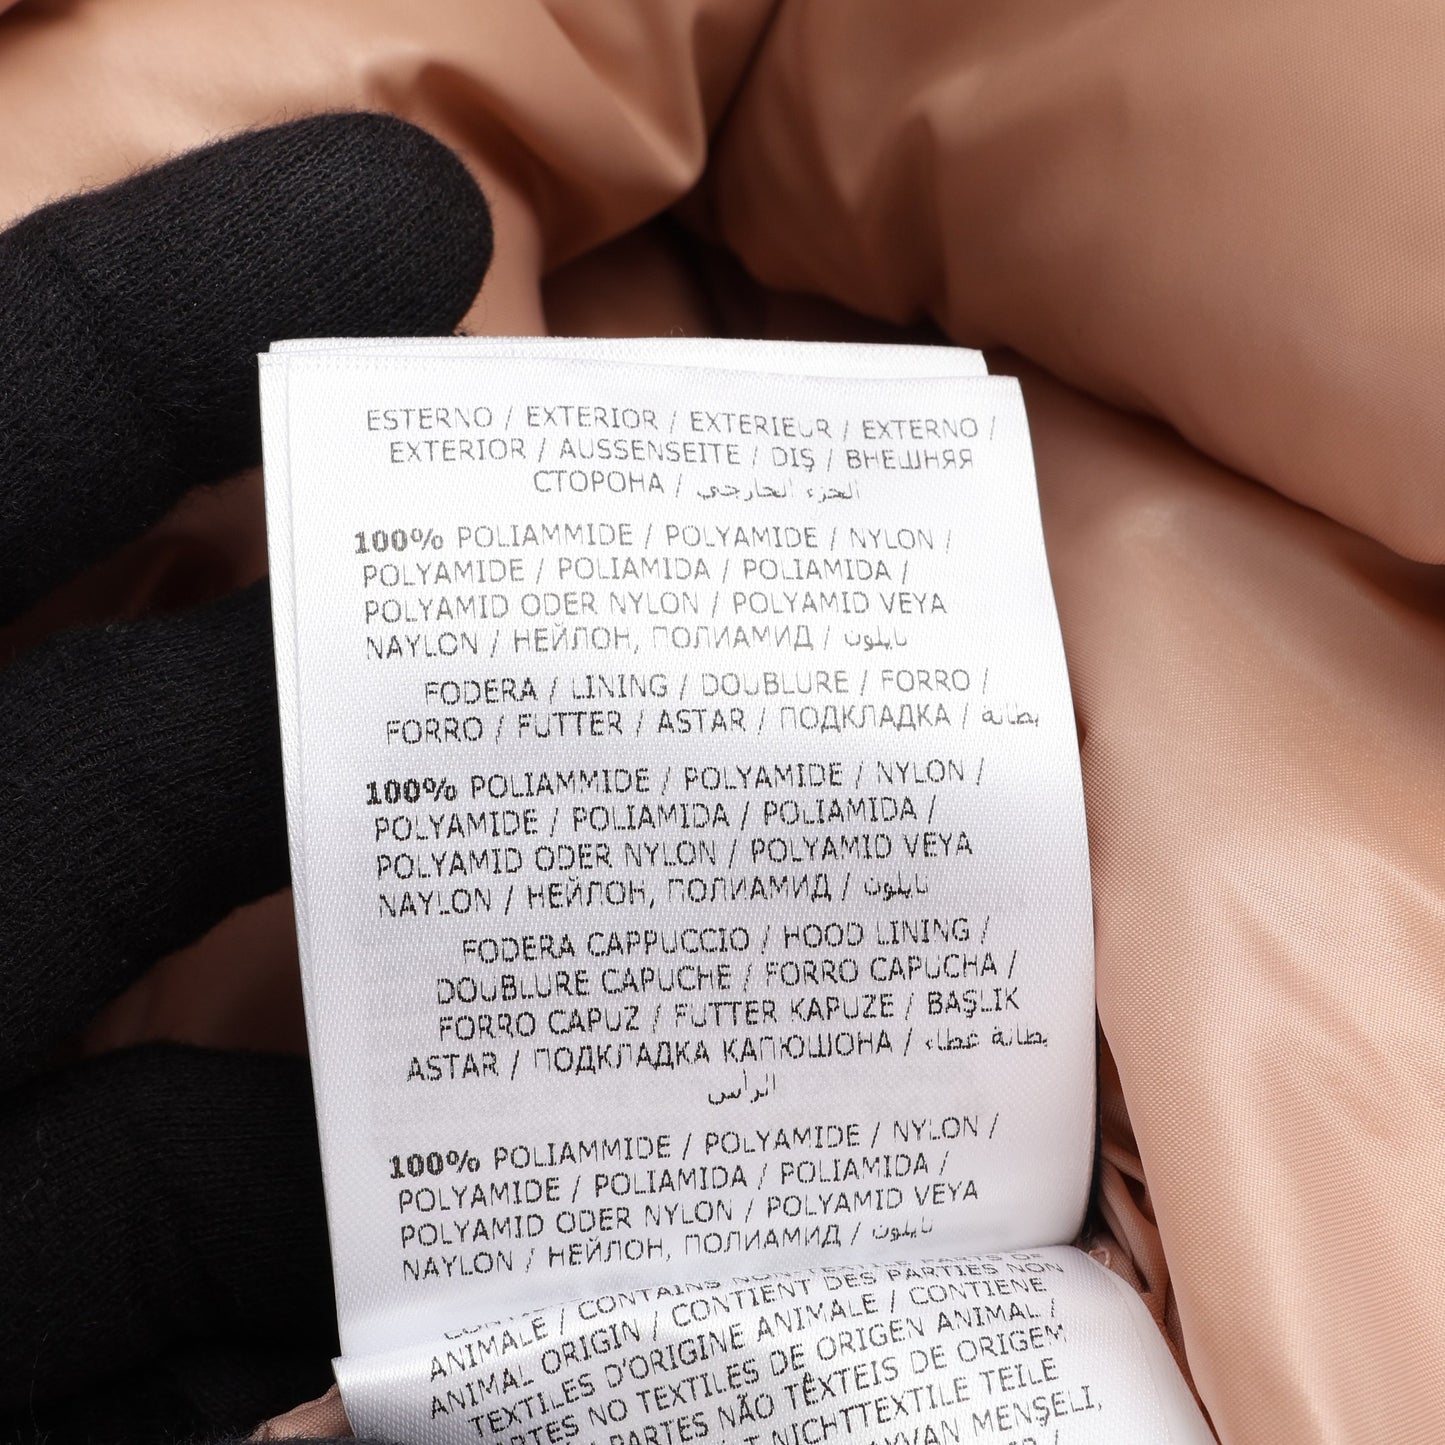 ESTERNO / EXTERIOR / EXTERIEUR / EXTERNO /
EXTERIOR / AUSSENSEITE / DIŞ / ВНЕШНЯЯ
СТОРОНА / الجزء الخارجي
100% POLIAMMIDE / POLYAMIDE / NYLON /
POLYAMIDE / POLIAMIDA / POLIAMIDA /
POLYAMID ODER NYLON / POLYAMID VEYA
NAYLON / НЕЙЛОН, ПОЛИАМИД / نايلون
FODERA / LINING / DOUBLURE / FORRO /
FORRO / FUTTER / ASTAR / ПОДКЛАДКА / بطانة
100% POLIAMMIDE / POLYAMIDE / NYLON /
POLYAMIDE / POLIAMIDA / POLIAMIDA /
POLYAMID ODER NYLON / POLYAMID VEYA
NAYLON / НЕЙЛОН, ПОЛИАМИД / نايلون
FODERA CAPPUCCIO / HOOD LINING /
DOUBLURE CAPUCHE / FORRO CAPUCHA /
FORRO CAPUZ / FUTTER KAPUZE / BAŞLIK
ASTAR / ПОДКЛАДКА КАПЮШОНА / بطانة غطاء
الرأس
100% POLIAMMIDE / POLYAMIDE / NYLON /
POLYAMIDE / POLIAMIDA / POLIAMIDA /
POLYAMID ODER NYLON / POLYAMID VEYA
NAYLON / НЕЙЛОН, ПОЛИАМИД / نايلون
ANIMALE / CONTAINS NONTEXTILE PARTS OF
ANIMAL ORIGIN / CONTIENT DES PARTIES NON
TEXTILES D'ORIGINE ANIMALE / CONTIENE
PARTES NO TEXTILES DE ORIGEN ANIMAL /
PARTES NÃO TÊXTEIS DE ORIGEM
NICHTTEXTILE TEILE
MENŞELI,